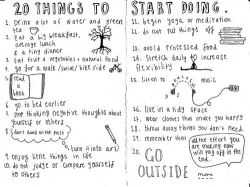 20 THINGS TO START DOING.
1. Drink lots of water and green
tea
2. Eat a big breakfast,
average lunch
& a tiny dinner
3. Eat fruit & vegetables + natural food
4. go for a walk/swim/bike ride
5. read
a
book
6. go to bed earlier
7. stop thinking negative thoughts about
yourself or others
8. don't dwell on the past
turn it into art
9. enjoy little things in life
10. do not judge or compare yourself
to others
11. begin yoga or meditation
12. do not put things off
13. avoid processed food
14. Stretch daily to increase
flexibility
15. Listen to music
16. live in a tidy space
17. wear clothes that make you happy
18. throw away things you don't need
19. remember that
all the effort you
are making now
will pay off in the
end.
20. GO
OUTSIDE more